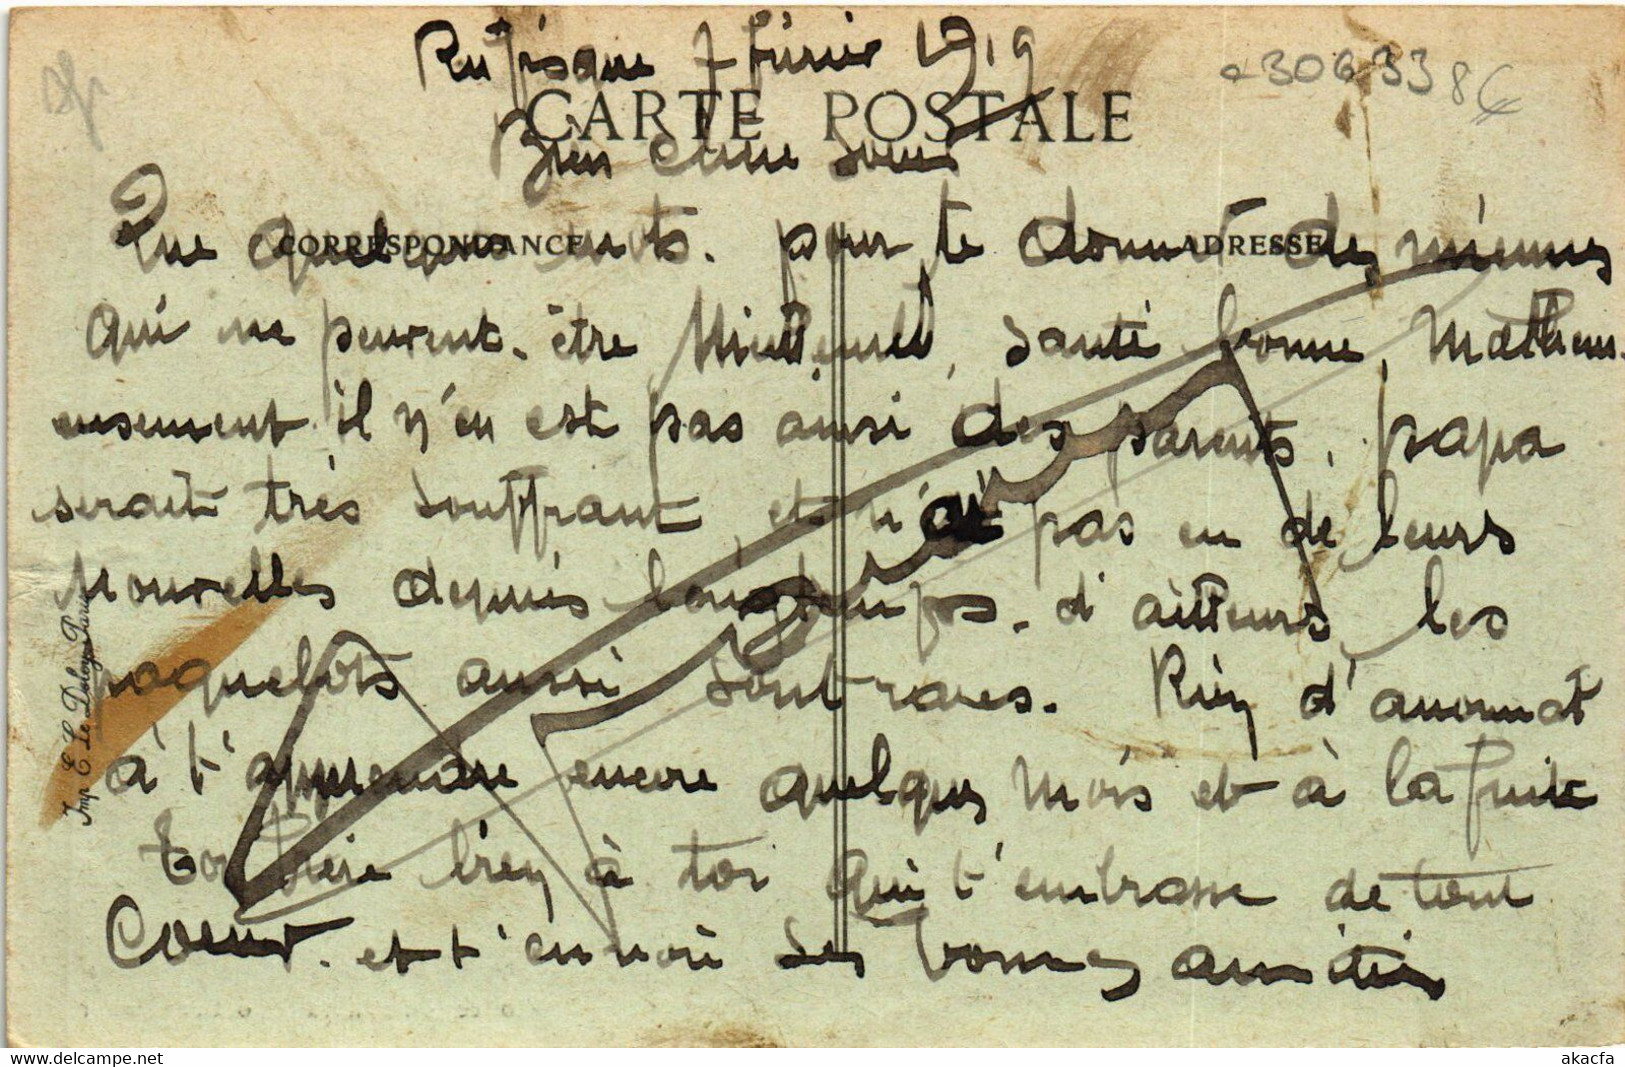 Rufisque 7 février 1919
+306338€
CARTE POSTALE
Bien chère soeur
CORRESPONDANCE
ADRESSE
Que quelques mots. pour te donner des miennes
qui ne peuvent. être Meilleures, santé bonne, Malheur-
eusement il n'en est pas ainsi des parents, papa
serait très souffrant et n'ai pas eu de leurs
Nouvelles depuis longtemps. d'ailleurs les
paquebots aussi sont rares. Rien d'anormal
à t'apprendre encore quelques mois et à la suite
Ton frère bien à toi qui t'embrasse de tout
Coeur. et t'envoie ses bonnes amitiés
Imp. E. Le Deley, Paris
akacfa-delcampe.net
akacfa